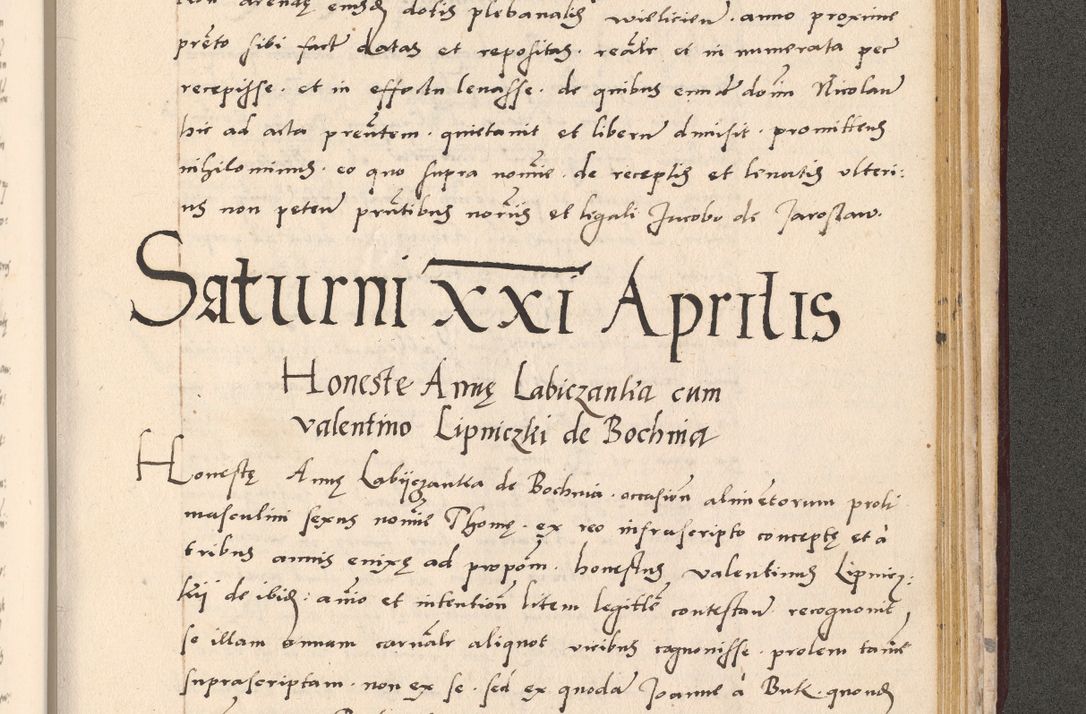 non arendę eiusdem dotis plebanalis wielicien̄ · anno proxime
pret̄o sibi fact̄ datas et repositas · real̄r et in numerata pec̄
recepisse · et in effectu levasse · de quibus eund̄ dom̄ Nicolau̅
hic ad acta pren̄tem · quietavit et liberu̅ dimisit · promittens
nihilominus · eo quo supra nom̄ie · de receptis et levatis ulteri:
us non peteр̄ prn̄tibus nor̄iis et ligali Jacobo de Jaroslaw.
Saturni XXI Aprilis
Honeste Annę Labiczanka cum
valentino Lipniczki de Bochnia
Honestę Annę Labijczanka de Bochnia · occasion̄ alimen̄torum proli
masculini sexus nom̄ie Thomę · ex reo infrascripto conceptę et à
tribus annis enixę ad propom̄ · honestus valentinus Lipnicz:
kij de ibid̄ : aīo et intention̄ litem legit̄ie contestan̄ · recognovit
se illam annam carnal̄r aliquot vicibus cognovisse · prolem tame̅
suprascriptam · non ex se · sed ex quoda̅ Joanne à Buk · quond̄